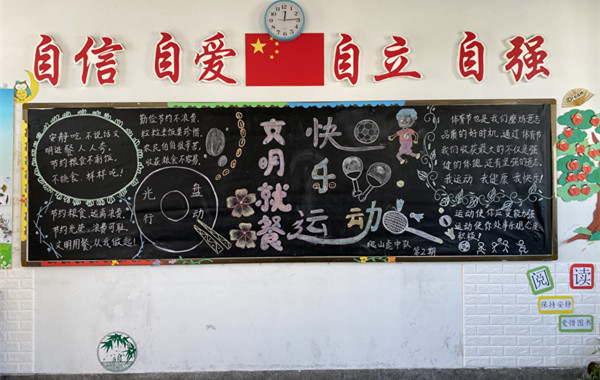 自信 自爱 自立 自强
安静吃,不说话文
明进餐人人夸。
节约粮食不剩饭,
不挑食,样样吃!
勤俭节约不浪费,
粒粒来之要珍惜
农民伯伯很辛苦,
收获粮食不容易。
节约粮食,远离浪费,
节约光荣,浪费可耻
文明用餐,从我做起!
光盘
行动
文明就餐
快乐
运动
爬山虎中队
第2期
体育节也是我们磨炼意志
品质的好时机,通过体育节
我们收获最大的不仅是强
健的体魄,还有坚强的意志
我运动 我健康 我快乐!
运动使你
运动使你
阅读
保持安静
爱惜图书